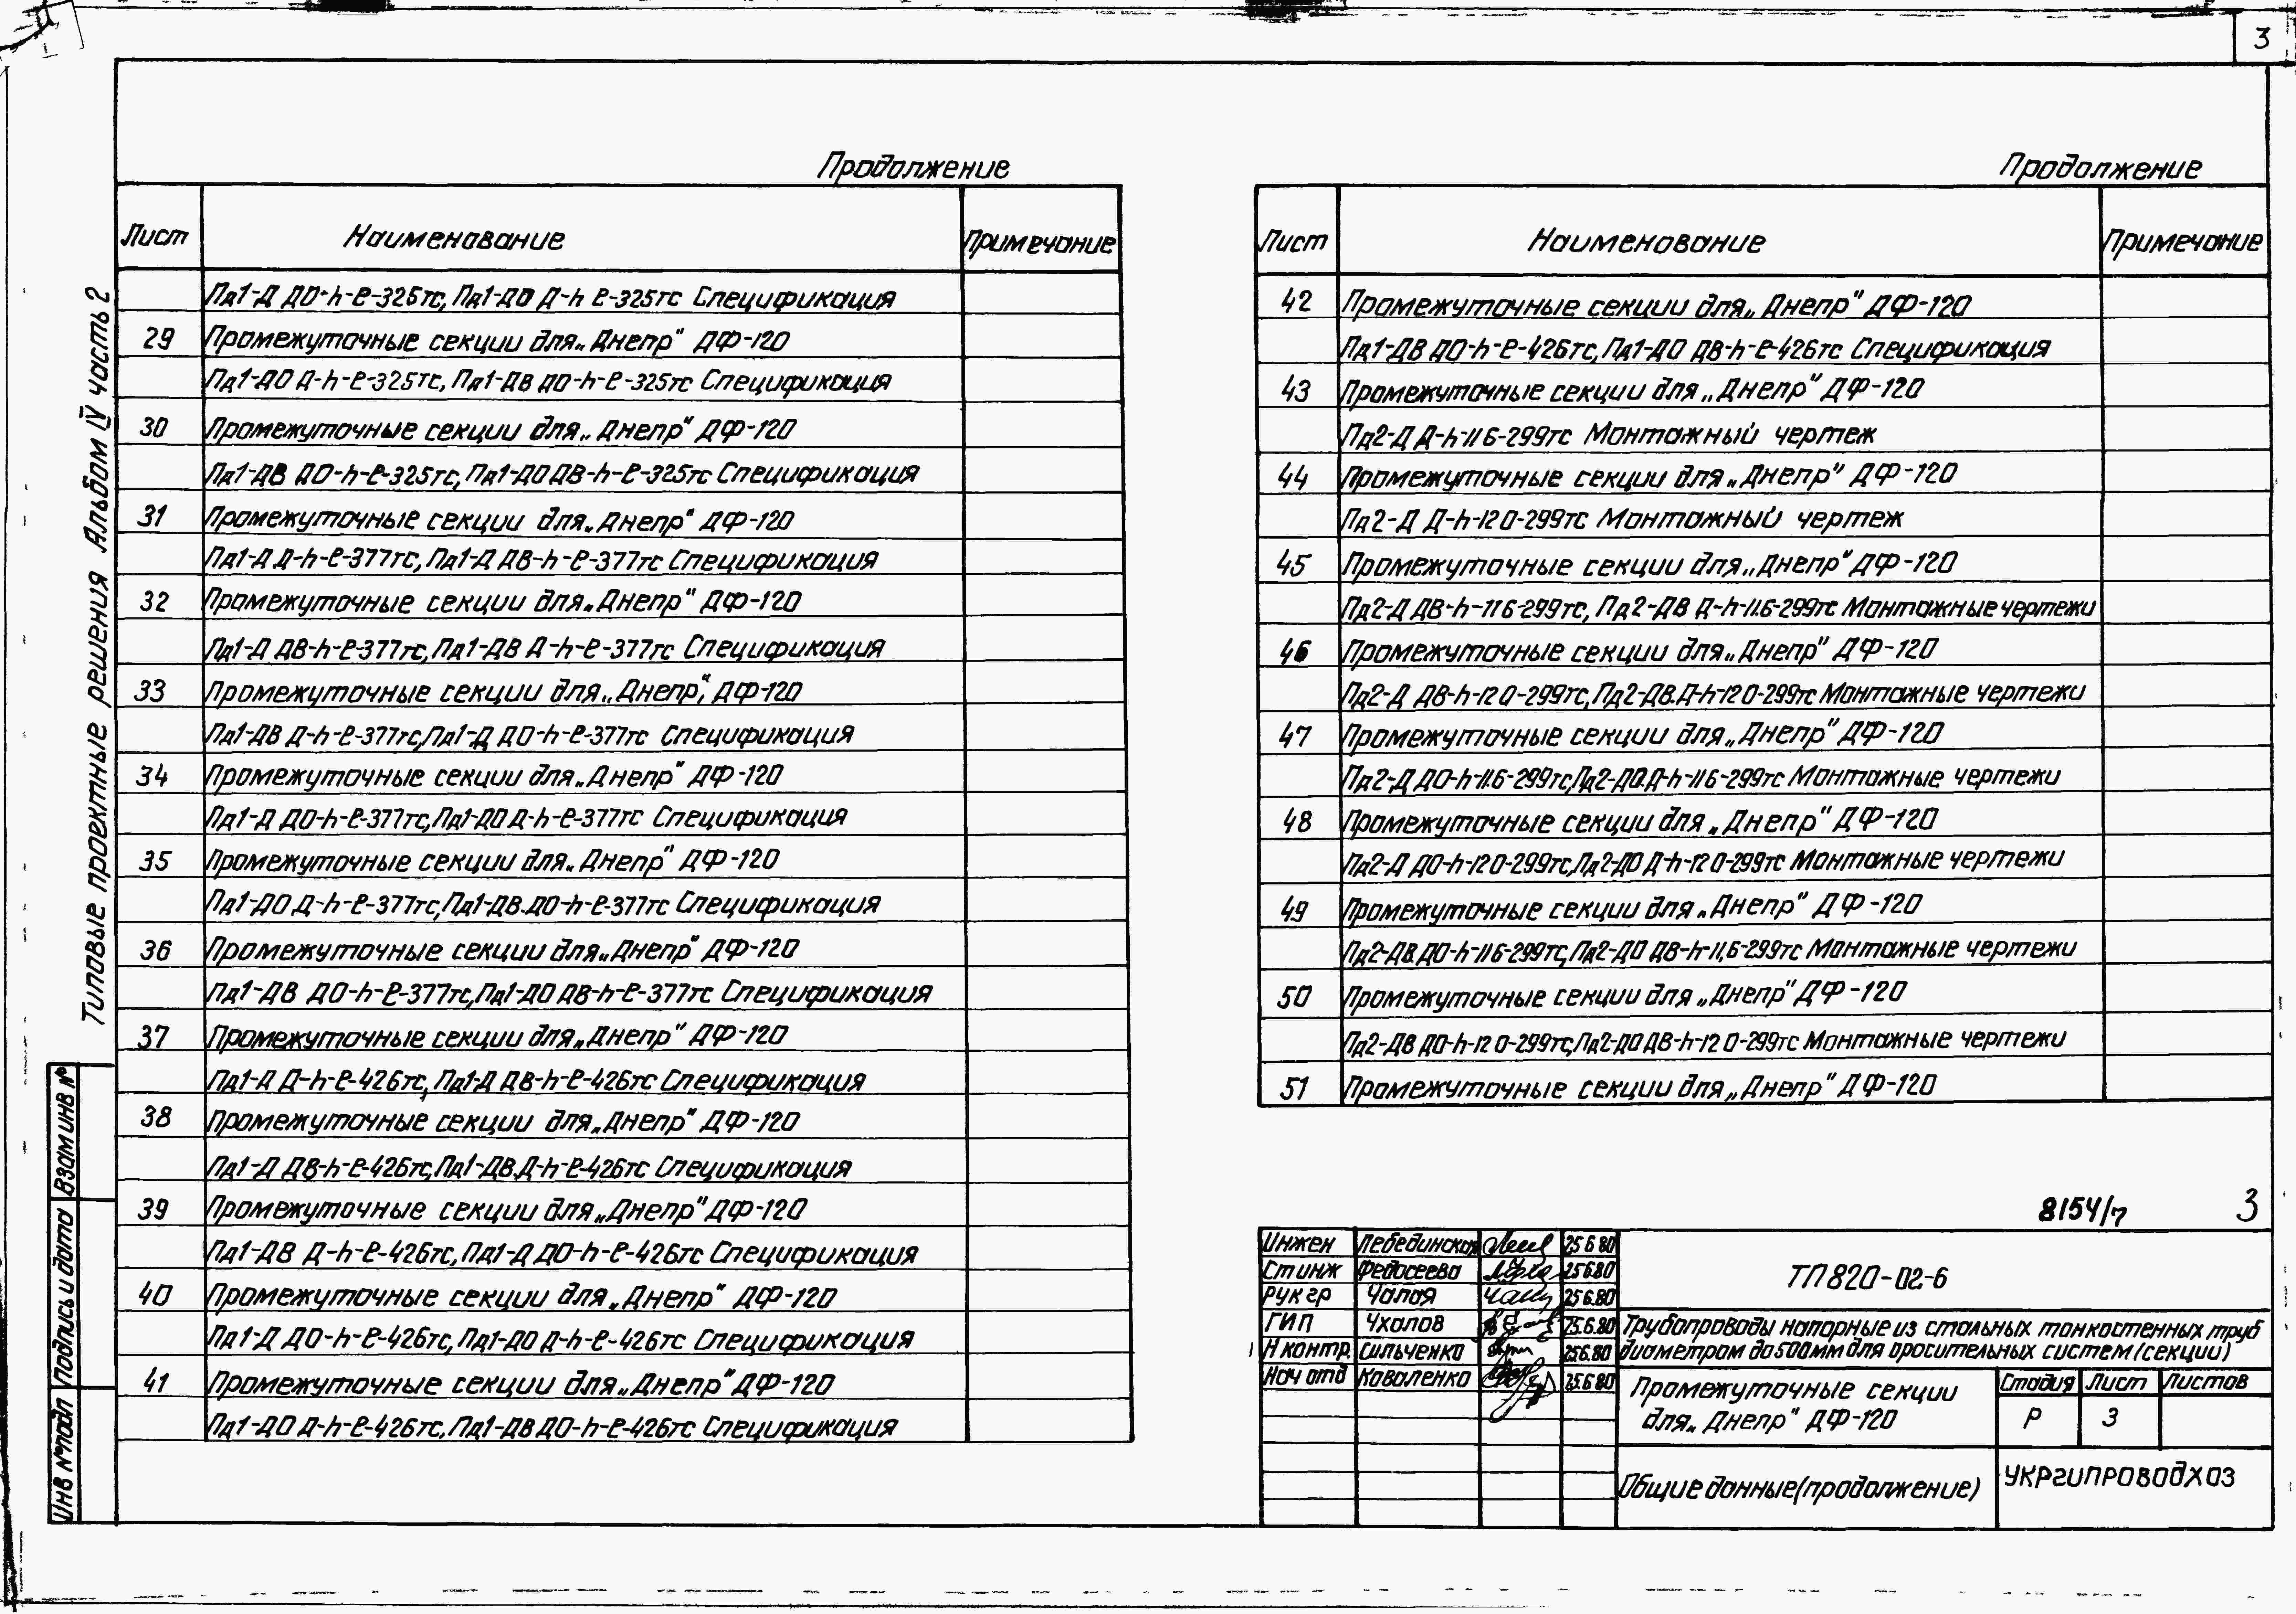 3
Типовые проектные решения Альбом IV часть 2
Продолжение
Лист Наименование Примечание
Пд1-Д ДО-h-ℓ-325тс, Пд1-ДО Д-h ℓ-325тс Спецификация
29 Промежуточные секции для „Днепр" ДФ-120
Пд1-ДО Д-h-ℓ-325тс, Пд1-ДВ ДО-h-ℓ-325тс Спецификация
30 Промежуточные секции для „Днепр" ДФ-120
Пд1-ДВ ДО-h-ℓ-325тс, Пд1-ДО ДВ-h-ℓ-325тс Спецификация
31 Промежуточные секции для „Днепр" ДФ-120
Пд1-Д Д-h-ℓ-377тс, Пд1-Д ДВ-h-ℓ-377тс Спецификация
32 Промежуточные секции для „Днепр" ДФ-120
Пд1-Д ДВ-h-ℓ-377тс, Пд1-ДВ Д-h-ℓ-377тс Спецификация
33 Промежуточные секции для „Днепр", ДФ-120
Пд1-ДВ Д-h-ℓ-377тс, Пд1-Д ДО-h-ℓ-377тс Спецификация
34 Промежуточные секции для „Днепр" ДФ-120
Пд1-Д ДО-h-ℓ-377тс, Пд1-ДО Д-h-ℓ-377тс Спецификация
35 Промежуточные секции для „Днепр" ДФ-120
Пд1-ДО Д-h-ℓ-377тс, Пд1-ДВ.ДО-h-ℓ-377тс Спецификация
36 Промежуточные секции для „Днепр" ДФ-120
Пд1-ДВ ДО-h-ℓ-377тс, Пд1-ДО ДВ-h-ℓ-377тс Спецификация
37 Промежуточные секции для „Днепр" ДФ-120
Пд1-Д Д-h-ℓ-426тс, Пд1-Д ДВ-h-ℓ-426тс Спецификация
38 Промежуточные секции для „Днепр" ДФ-120
Пд1-Д ДВ-h-ℓ-426тс, Пд1-ДВ.Д-h-ℓ-426тс Спецификация
39 Промежуточные секции для „Днепр" ДФ-120
Пд1-ДВ Д-h-ℓ-426тс, Пд1-Д ДО-h-ℓ-426тс Спецификация
40 Промежуточные секции для „Днепр" ДФ-120
Пд1-Д ДО-h-ℓ-426тс, Пд1-ДО Д-h-ℓ-426тс Спецификация
41 Промежуточные секции для „Днепр" ДФ-120
Пд1-ДО Д-h-ℓ-426тс, Пд1-ДВ ДО-h-ℓ-426тс Спецификация
Продолжение
Лист Наименование Примечание
42 Промежуточные секции для „Днепр" ДФ-120
Пд1-ДВ ДО-h-ℓ-426тс, Пд1-ДО ДВ-h-ℓ-426тс Спецификация
43 Промежуточные секции для „Днепр" ДФ-120
Пд2-Д Д-h-11 6-299тс Монтажный чертеж
44 Промежуточные секции для „Днепр" ДФ-120
Пд2-Д Д-h-12 0-299тс Монтажный чертеж
45 Промежуточные секции для „Днепр" ДФ-120
Пд2-Д ДВ-h-11 6-299тс, Пд2-ДВ Д-h-11.6-299тс Монтажные чертежи
46 Промежуточные секции для „Днепр" ДФ-120
Пд2-Д ДВ-h-12 0-299тс, Пд2-ДВ.Д-h-12 0-299тс Монтажные чертежи
47 Промежуточные секции для „Днепр" ДФ-120
Пд2-Д ДО-h-11.6-299тс, Пд2-ДО.Д-h-11 6-299тс Монтажные чертежи
48 Промежуточные секции для „Днепр" ДФ-120
Пд2-Д ДО-h-12 0-299тс, Пд2-ДО Д-h-12 0-299тс Монтажные чертежи
49 Промежуточные секции для „Днепр" ДФ-120
Пд2-ДВ ДО-h-11 6-299тс, Пд2-ДО ДВ-h-11,6-299тс Монтажные чертежи
50 Промежуточные секции для „Днепр" ДФ-120
Пд2-ДВ ДО-h-12 0-299тс, Пд2-ДО ДВ-h-12 0-299тс Монтажные чертежи
51 Промежуточные секции для „Днепр" ДФ-120
8154/7 3
Инжен Лебединская 25 6 80
Ст инж Федосеева 25 6.80
Рук гр Чалая 25 6.80
ГИП Чхалов 25.6.80
Н контр. Сильченко 25.6.80
Нач отд Коваленко 25.6 80
ТП 820-02-6
Трубопроводы напорные из стальных тонкостенных труб
диаметром до 500мм для оросительных систем (секции)
Промежуточные секции
для „Днепр" ДФ-120
Стадия Лист Листов
Р 3
Общие данные (продолжение)
УКРГИПРОВОДХОЗ
Взам инв №
Подпись и дата
Инв № подл